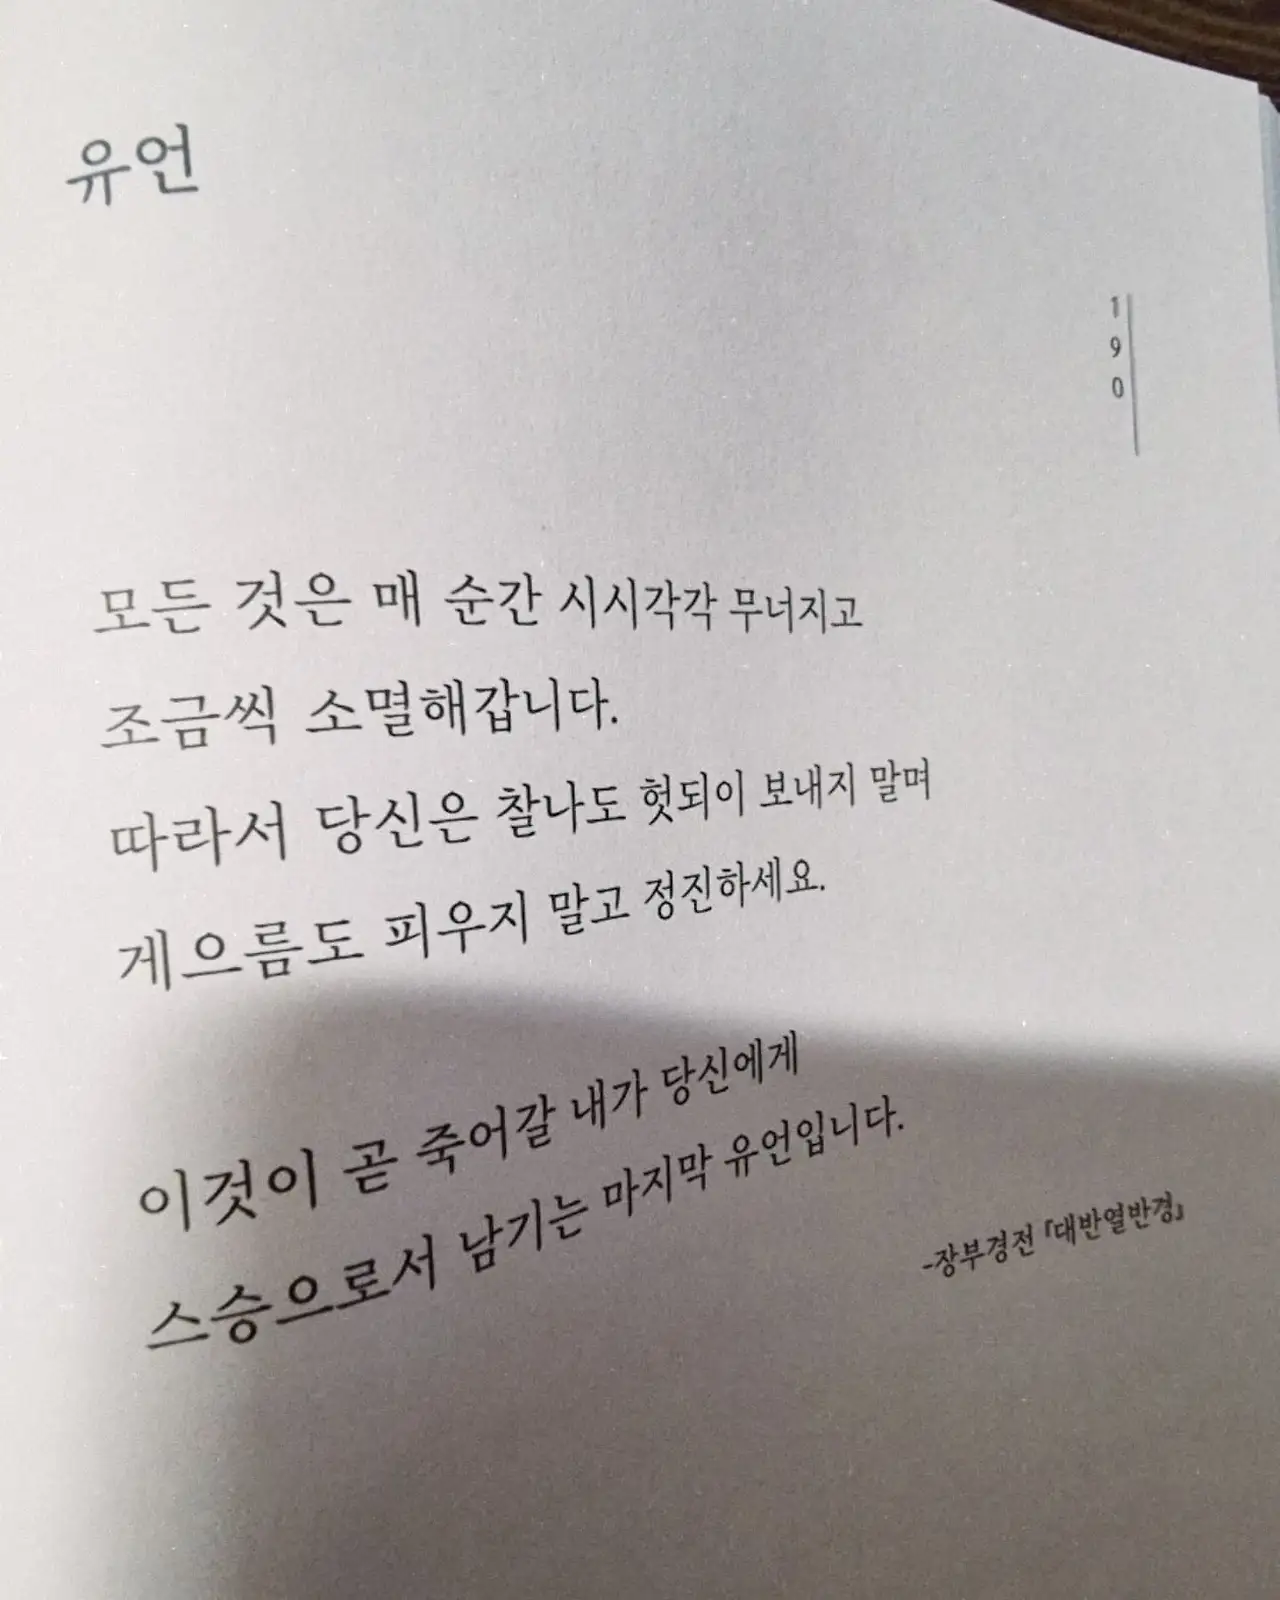 유언
190
모든 것은 매 순간 시시각각 무너지고
조금씩 소멸해갑니다.
따라서 당신은 찰나도 헛되이 보내지 말며
게으름도 피우지 말고 정진하세요.
이것이 곧 죽어갈 내가 당신에게
스승으로서 남기는 마지막 유언입니다.
-장부경전 『대반열반경』